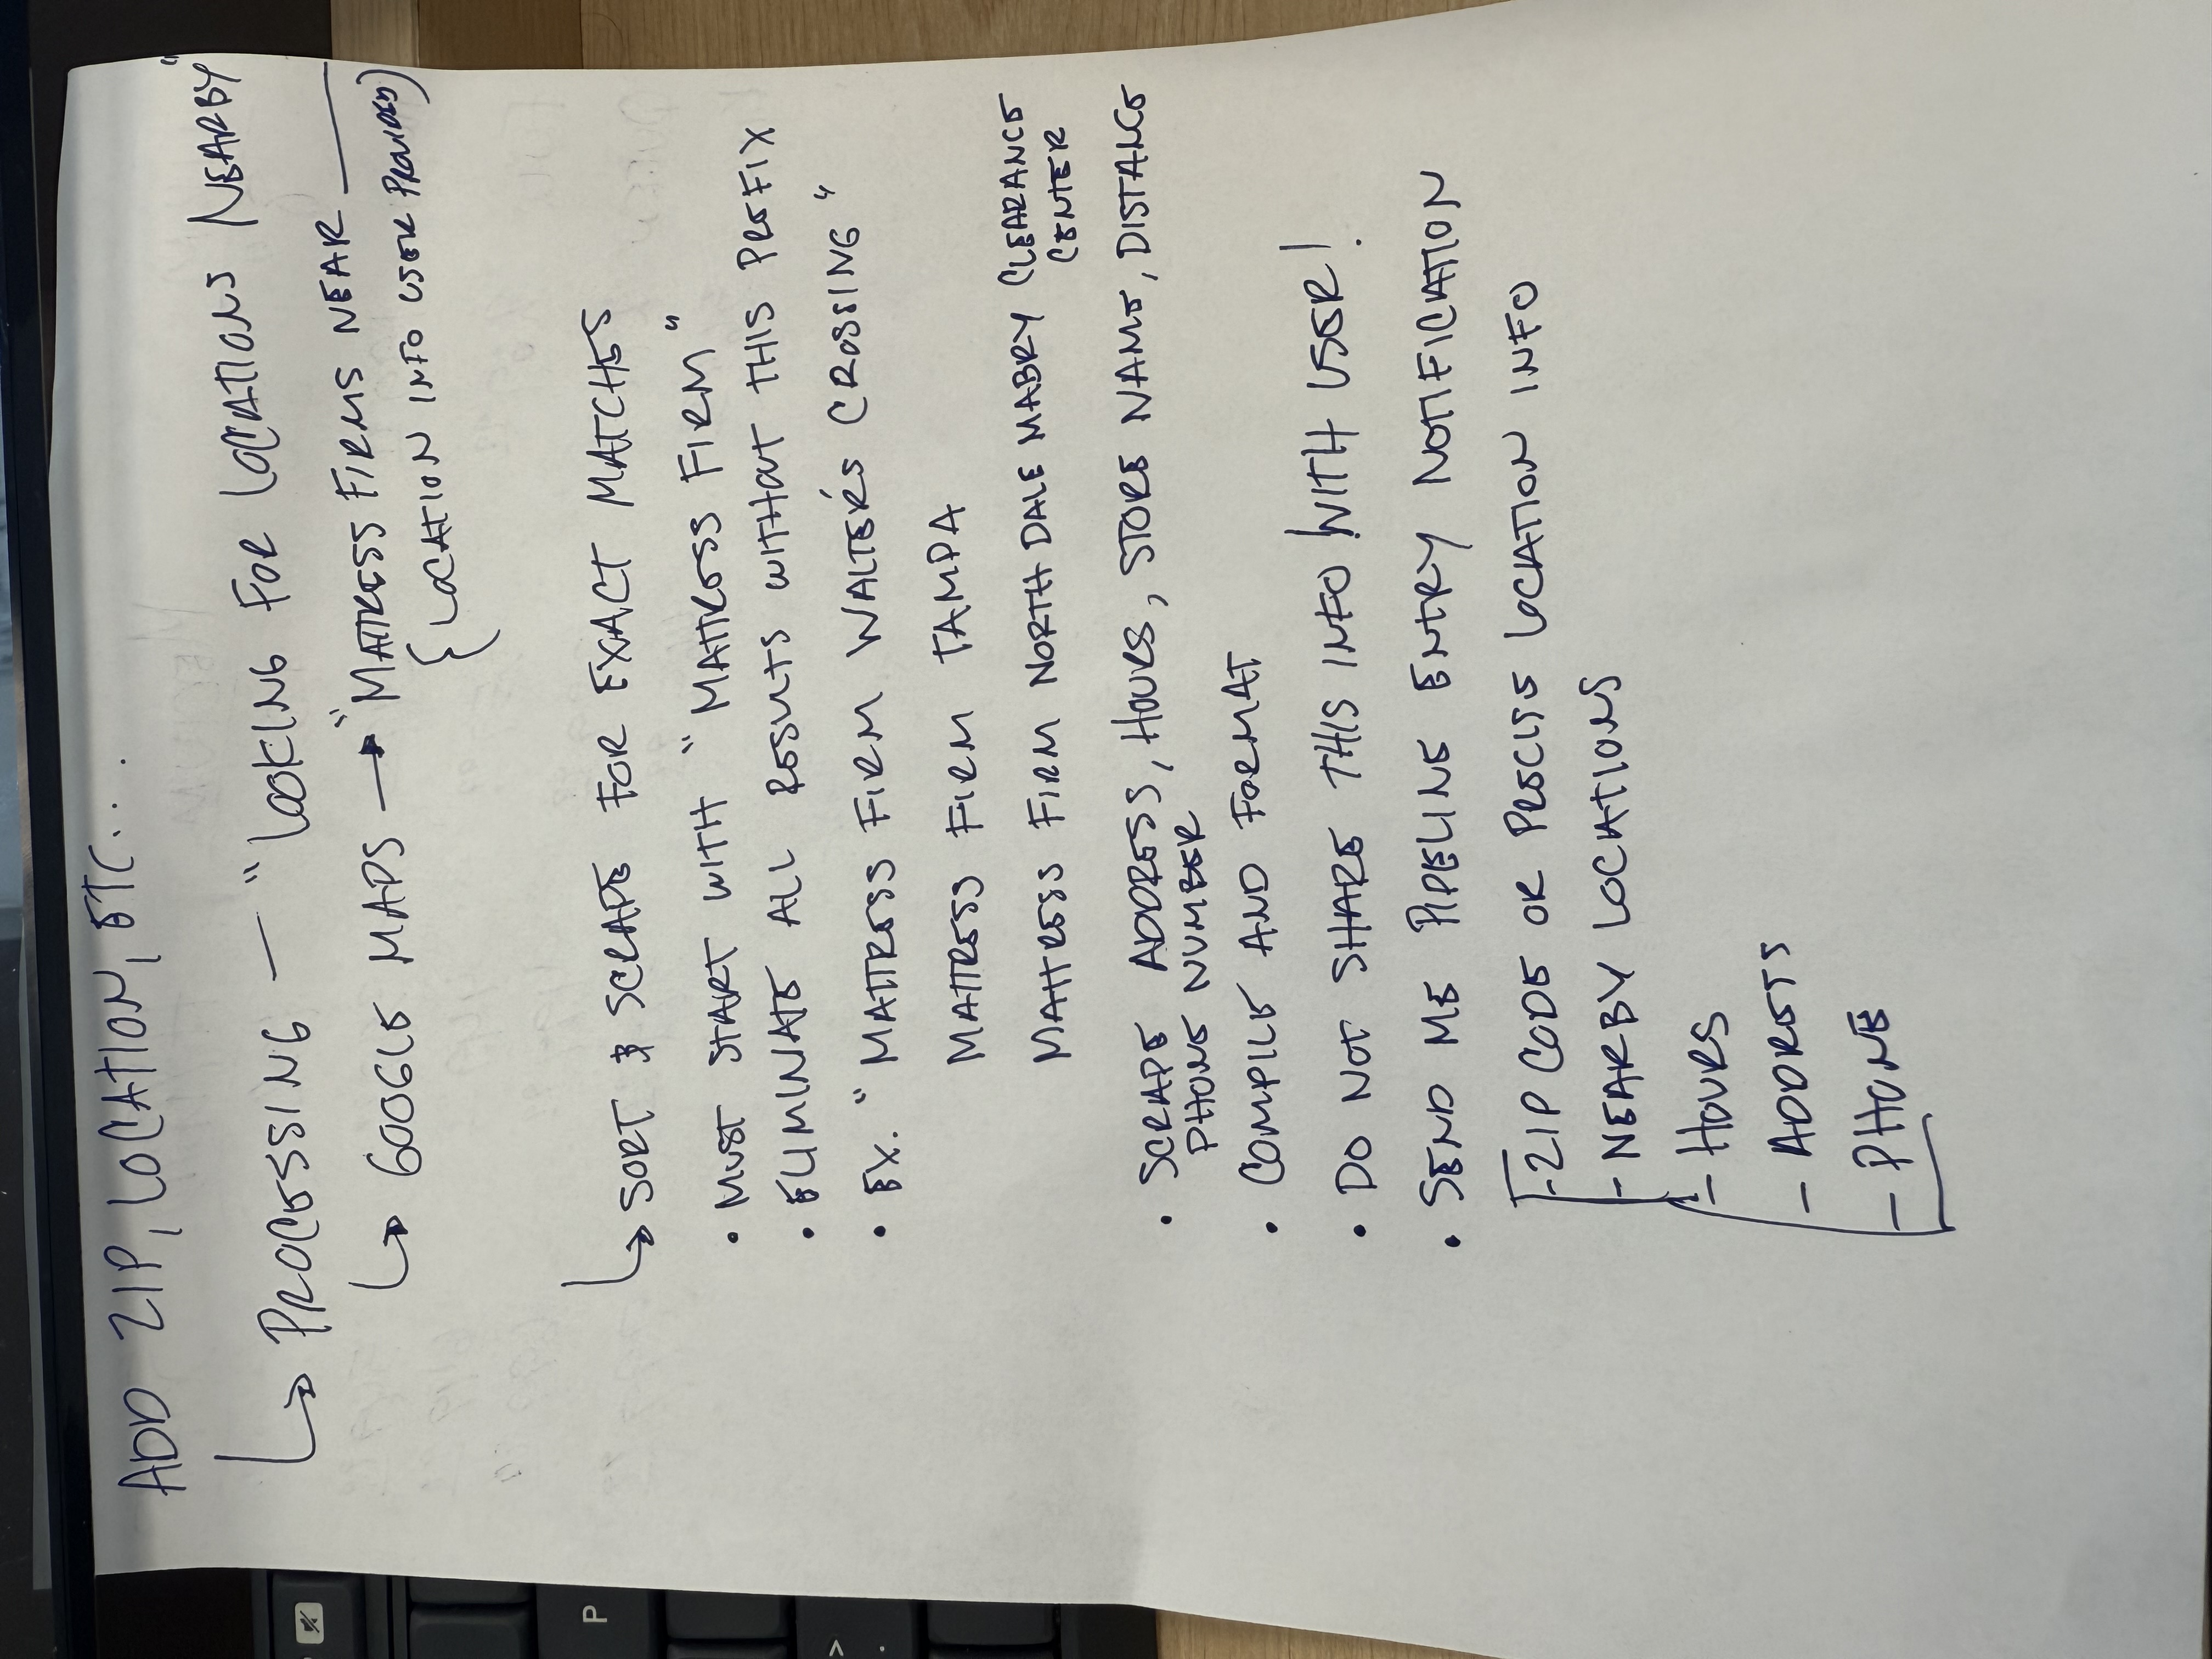 ADD ZIP, LOCATION, ETC...
PROCESSING — "LOOKING FOR LOCATIONS NEARBY"
GOOGLE MAPS → "MATTRESS FIRMS NEAR ____
{LOCATION INFO USER PROVIDES)
SORT & SCRAPE FOR EXACT MATCHES
• MUST START WITH "MATTRESS FIRM"
• ELIMINATE ALL RESULTS WITHOUT THIS PREFIX
• EX. "MATTRESS FIRM WALTER'S CROSSING"
MATTRESS FIRM TAMPA
MATTRESS FIRM NORTH DALE MABRY CLEARANCE
CENTER
• SCRAPE ADDRESS, HOURS, STORE NAME, DISTANCE
PHONE NUMBER
• COMPILE AND FORMAT
• DO NOT SHARE THIS INFO WITH USER!
• SEND ME PIPELINE ENTRY NOTIFICATION
- ZIP CODE OR PRECISE LOCATION INFO
- NEARBY LOCATIONS
- HOURS
- ADDRESS
- PHONE
P
>
.